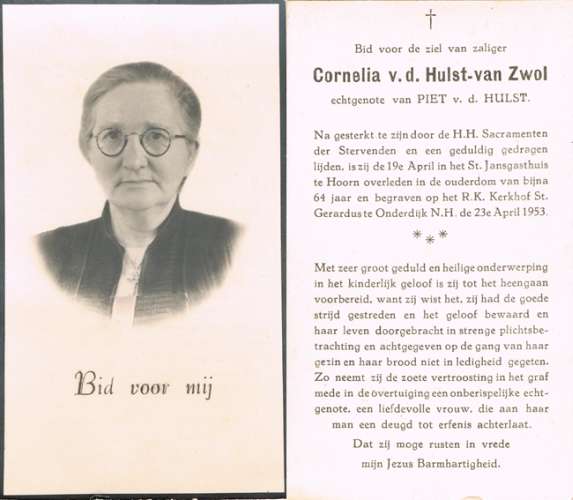 Bid voor mij
†
Bid voor de ziel van zaliger
Cornelia v. d. Hulst-van Zwol
echtgenote van PIET v. d. HULST.
Na gesterkt te zijn door de H.H. Sacramenten
der Stervenden en een geduldig gedragen
lijden, is zij de 19e April in het St. Jansgasthuis
te Hoorn overleden in de ouderdom van bijna
64 jaar en begraven op het R.K. Kerkhof St.
Gerardus te Onderdijk N.H. de 23e April 1953.
* * *
Met zeer groot geduld en heilige onderwerping
in het kinderlijk geloof is zij tot het heengaan
voorbereid, want zij wist het, zij had de goede
strijd gestreden en het geloof bewaard en
haar leven doorgebracht in strenge plichtsbe-
trachting en achtgegeven op de gang van haar
gezin en haar brood niet in ledigheid gegeten.
Zo neemt zij de zoete vertroosting in het graf
mede in de overtuiging een onberispelijke echt-
genote, een liefdevolle vrouw, die aan haar
man een deugd tot erfenis achterlaat.
Dat zij moge rusten in vrede
mijn Jezus Barmhartigheid.